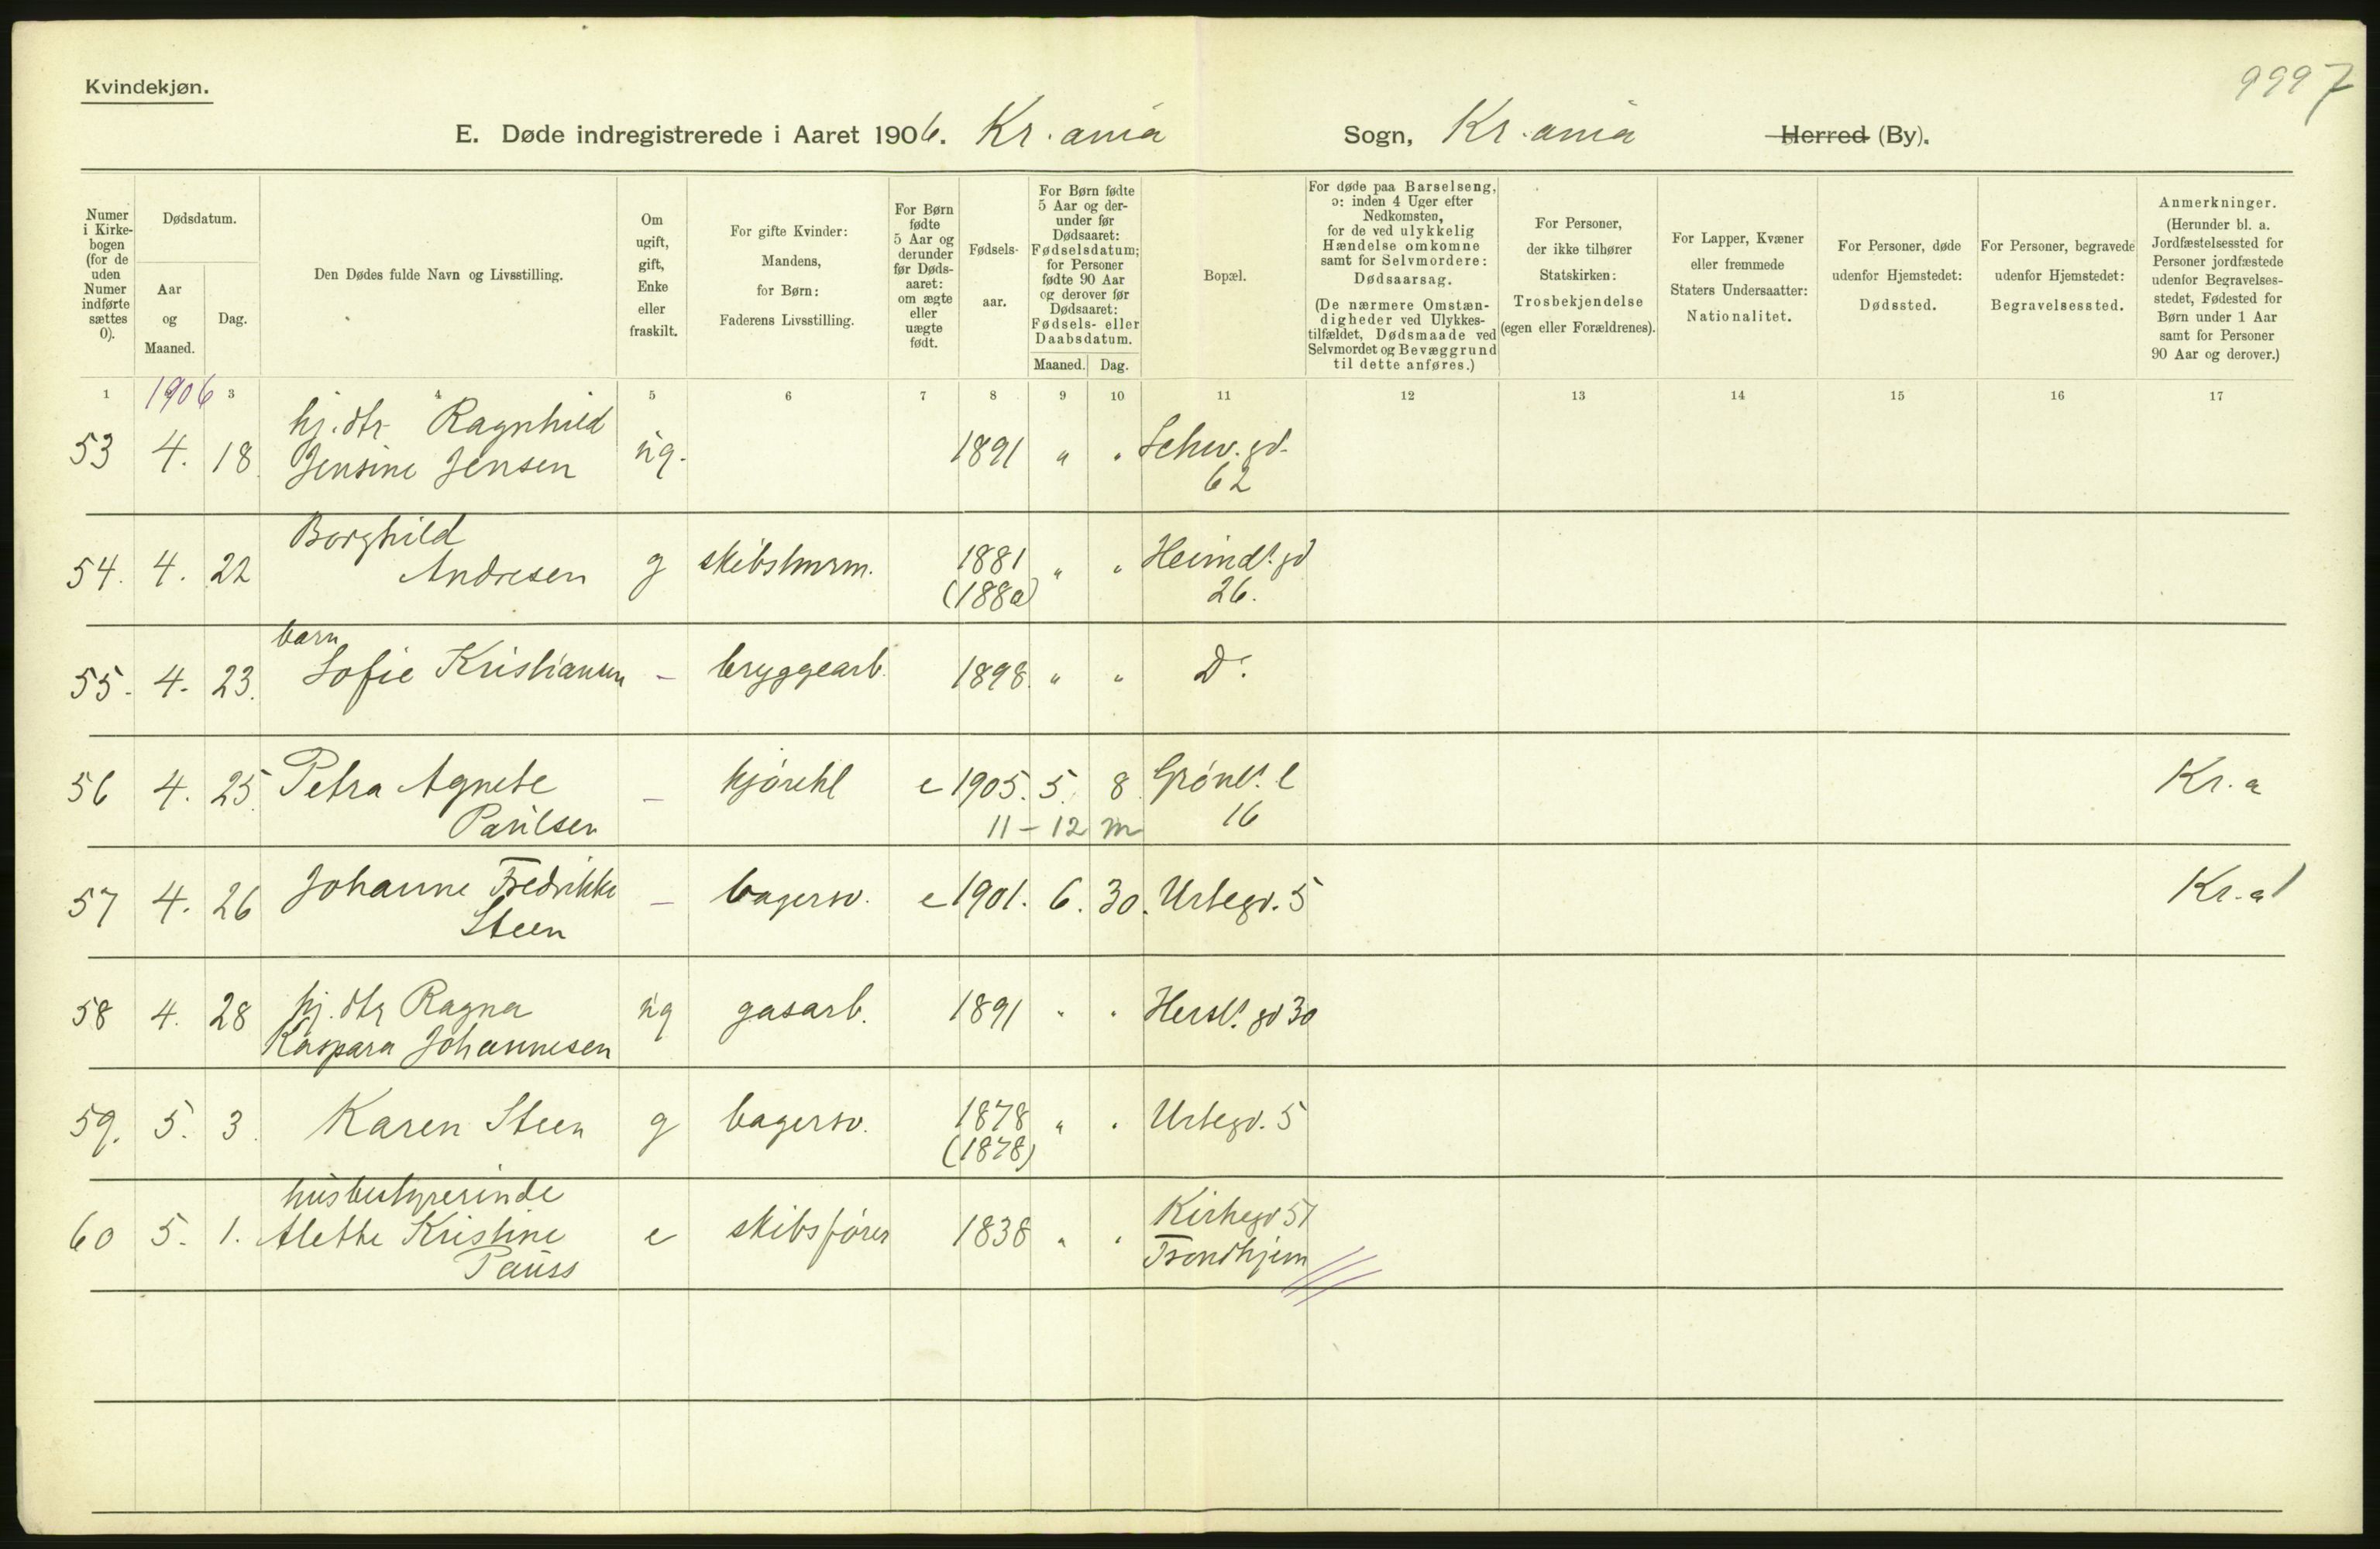 Kvindekjøn.
9997
E. Døde indregistrerede i Aaret 1906. Kr.ania Sogn, Kr.ania Herred (By).
Numer i Kirkebogen (for de uden Numer indførte sættes 0).
Dødsdatum.
Aar og Maaned.
Dag.
Den Dødes fulde Navn og Livsstilling.
Om ugift, gift, Enke eller fraskilt.
For gifte Kvinder: Mandens, for Børn: Faderens Livsstilling.
For Børn fødte 5 Aar og derunder før Dødsaaret: om ægte eller uægte født.
Fødselsaar.
For Børn fødte 5 Aar og derunder før Dødsaaret: Fødselsdatum; for Personer fødte 90 Aar og derover før Dødsaaret: Fødsels- eller Daabsdatum.
Maaned. Dag.
Bopæl.
For døde paa Barselseng, ɔ: inden 4 Uger efter Nedkomsten, for de ved ulykkelig Hændelse omkomne samt for Selvmordere: Dødsaarsag.
(De nærmere Omstændigheder ved Ulykkestilfældet, Dødsmaade ved Selvmordet og Bevæggrund til dette anføres.)
For Personer, der ikke tilhører Statskirken: Trosbekjendelse (egen eller Forældrenes).
For Lapper, Kvæner eller fremmede Staters Undersaatter: Nationalitet.
For Personer, døde udenfor Hjemstedet: Dødssted.
For Personer, begravede udenfor Hjemstedet: Begravelsessted.
Anmerkninger. (Herunder bl. a. Jordfæstelsessted for Personer jordfæstede udenfor Begravelsesstedet, Fødested for Børn under 1 Aar samt for Personer 90 Aar og derover.)
1 1906 3 4 5 6 7 8 9 10 11 12 13 14 15 16 17
hj. dtr Ragnhild
53 4. 18. Jensine Jensen ug. 1891 " " Schw. gd.
62
Borghild
54. 4. 22 Andresen g skibstmrm. 1881 " " Heimd. gd
(1880) 26.
barn
55. 4. 23. Sofie Kristiansen - bryggearb. 1898. " " Do.
56 4. 25. Petra Agnete - kjørekl e 1905. 5. 8 Grønl. l Kr.a
Paulsen 11 - 12 m 16
57 4. 26 Johanne Fredrikke - bagersv. e 1901. 6. 30. Urtegd. 5 Kr.a
Steen
58 4. 28 hj. dtr Ragna ug gasarb. 1891 " " Hersl. gd 30
Kaspara Johannesen
59. 5. 3. Karen Steen g bagersv. 1878 " " Urtegd. 5
(1878)
husbestyrerinde
60 5. 1. Alette Kristine e skibsfører 1838 " " Kirkegd 51
Pauss Trondhjem